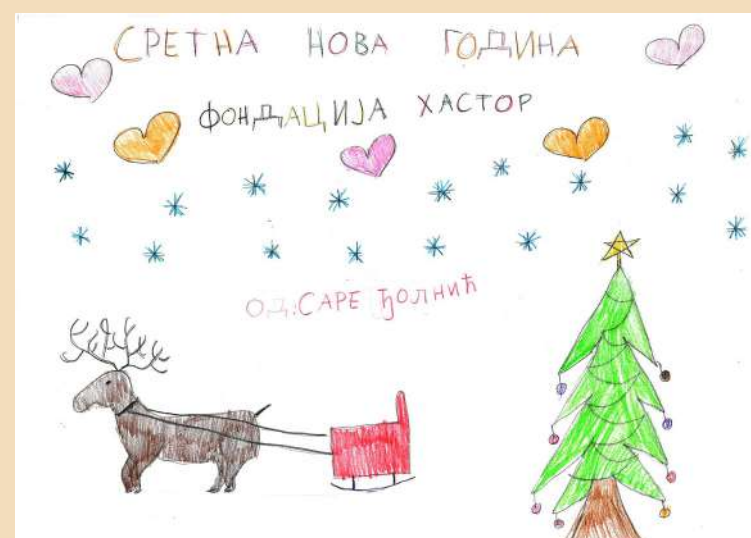 СРЕТНА НОВА ГОДИНА
ФОНДАЦИЈА ХАСТОР
ОД: САРЕ ЂОЛНИЋ